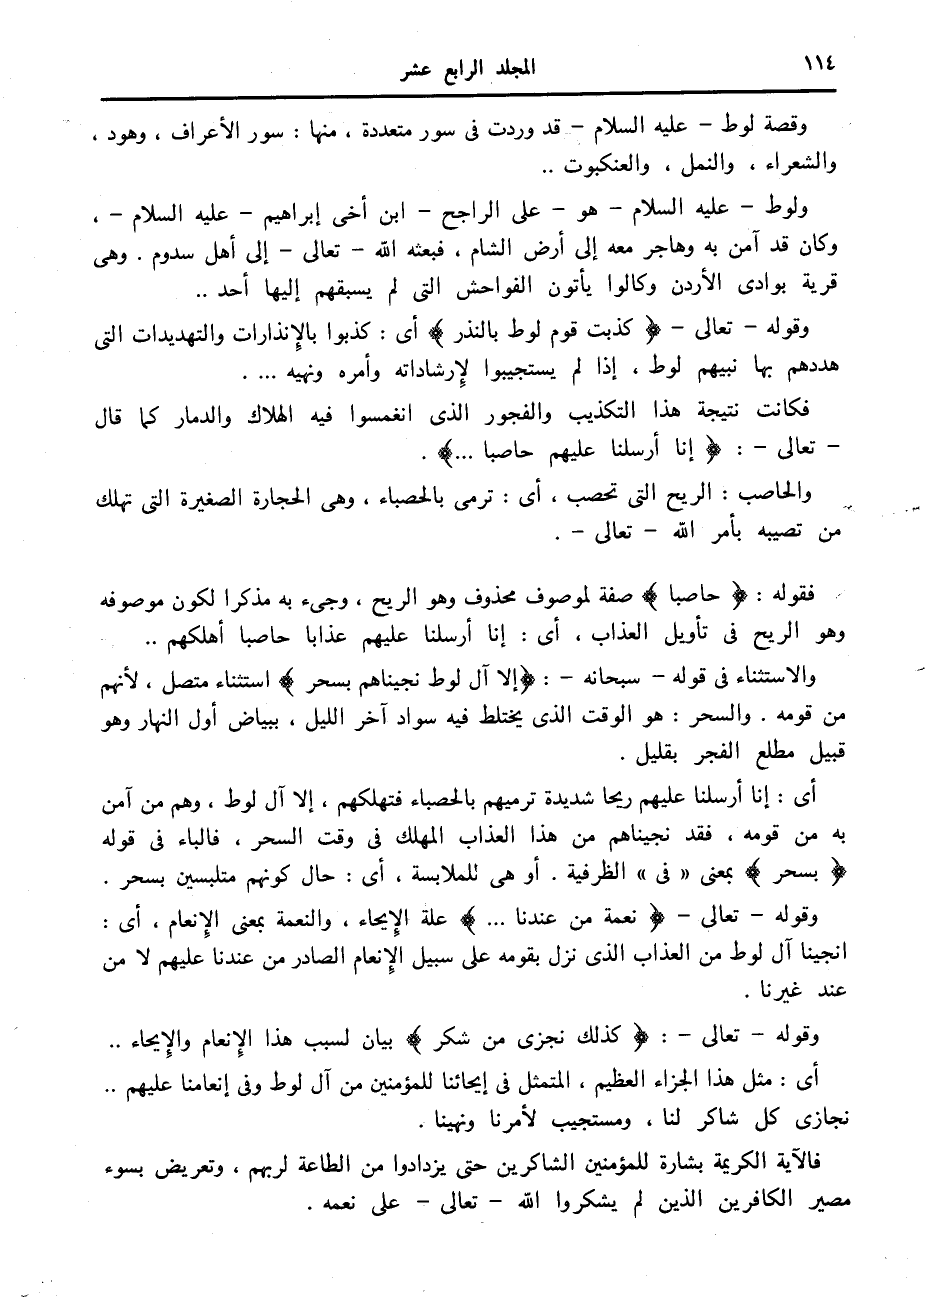 ١١٤
المجلد الرابع عشر
وقصة لوط – عليه السلام – قد وردت فى سور متعددة ، منها : سور الأعراف ، وهود ،
والشعراء ، والنمل ، والعنكبوت ..
ولوط – عليه السلام – هو – على الراجح – ابن أخى إبراهيم – عليه السلام – ،
وكان قد آمن به وهاجر معه إلى أرض الشام ، فبعثه الله – تعالى – إلى أهل سدوم . وهى
قرية بوادى الأردن وكالوا يأتون الفواحش التى لم يسبقهم إليها أحد ..
وقوله – تعالى – ﴿ كذبت قوم لوط بالنذر ﴾ أى : كذبوا بالإنذارات والتهديدات التى
هددهم بها نبيهم لوط ، إذا لم يستجيبوا لإرشاداته وأمره ونهيه ... .
فكانت نتيجة هذا التكذيب والفجور الذى انغمسوا فيه الهلاك والدمار كما قال
– تعالى – : ﴿ إنا أرسلنا عليهم حاصبا ...﴾ .
والحاصب : الريح التى تحصب ، أى : ترمى بالحصباء ، وهى الحجارة الصغيرة التى تهلك
من تصيبه بأمر الله – تعالى – .
فقوله : ﴿ حاصبا ﴾ صفة لموصوف محذوف وهو الريح ، وجىء به مذكرا لكون موصوفه
وهو الريح فى تأويل العذاب ، أى : إنا أرسلنا عليهم عذابا حاصبا أهلكهم ..
والاستثناء فى قوله – سبحانه – : ﴿إلا آل لوط نجيناهم بسحر ﴾ استثناء متصل ، لأنهم
من قومه . والسحر : هو الوقت الذى يختلط فيه سواد آخر الليل ، ببياض أول النهار وهو
قبيل مطلع الفجر بقليل .
أى : إنا أرسلنا عليهم ريحا شديدة ترميهم بالحصباء فتهلكهم ، إلا آل لوط ، وهم من آمن
به من قومه ، فقد نجيناهم من هذا العذاب المهلك فى وقت السحر ، فالباء فى قوله
﴿ بسحر ﴾ بمعنى « فى » الظرفية . أو هى للملابسة ، أى : حال كونهم متلبسين بسحر .
وقوله – تعالى – ﴿ نعمة من عندنا ... ﴾ علة الإيحاء ، والنعمة بمعنى الإنعام ، أى :
انجينا آل لوط من العذاب الذى نزل بقومه على سبيل الإنعام الصادر من عندنا عليهم لا من
عند غيرنا .
وقوله – تعالى – : ﴿ كذلك نجزى من شكر ﴾ بيان لسبب هذا الإنعام والإيحاء ..
أى : مثل هذا الجزاء العظيم ، المتمثل فى إيحائنا للمؤمنين من آل لوط وفى إنعامنا عليهم ..
نجازى كل شاكر لنا ، ومستجيب لأمرنا ونهينا .
فالآية الكريمة بشارة للمؤمنين الشاكرين حتى يزدادوا من الطاعة لربهم ، وتعريض بسوء
مصير الكافرين الذين لم يشكروا الله – تعالى – على نعمه .